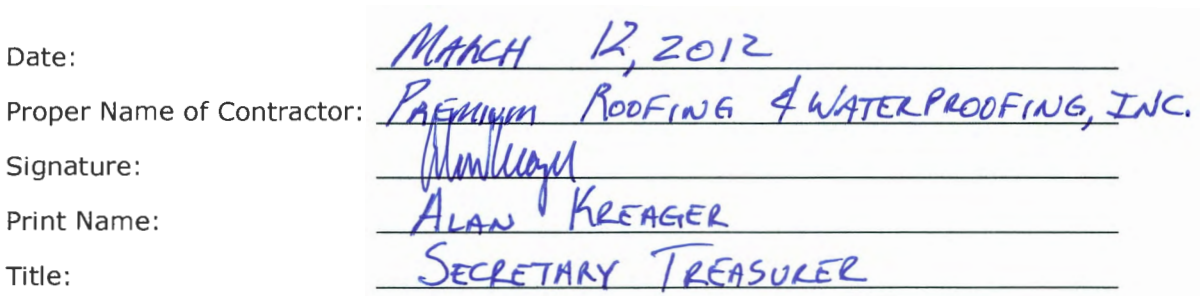 Date: MARCH 12, 2012
Proper Name of Contractor: PREMIUM ROOFING & WATERPROOFING, INC.
Signature:
Print Name: ALAN KREAGER
Title: SECRETARY TREASURER